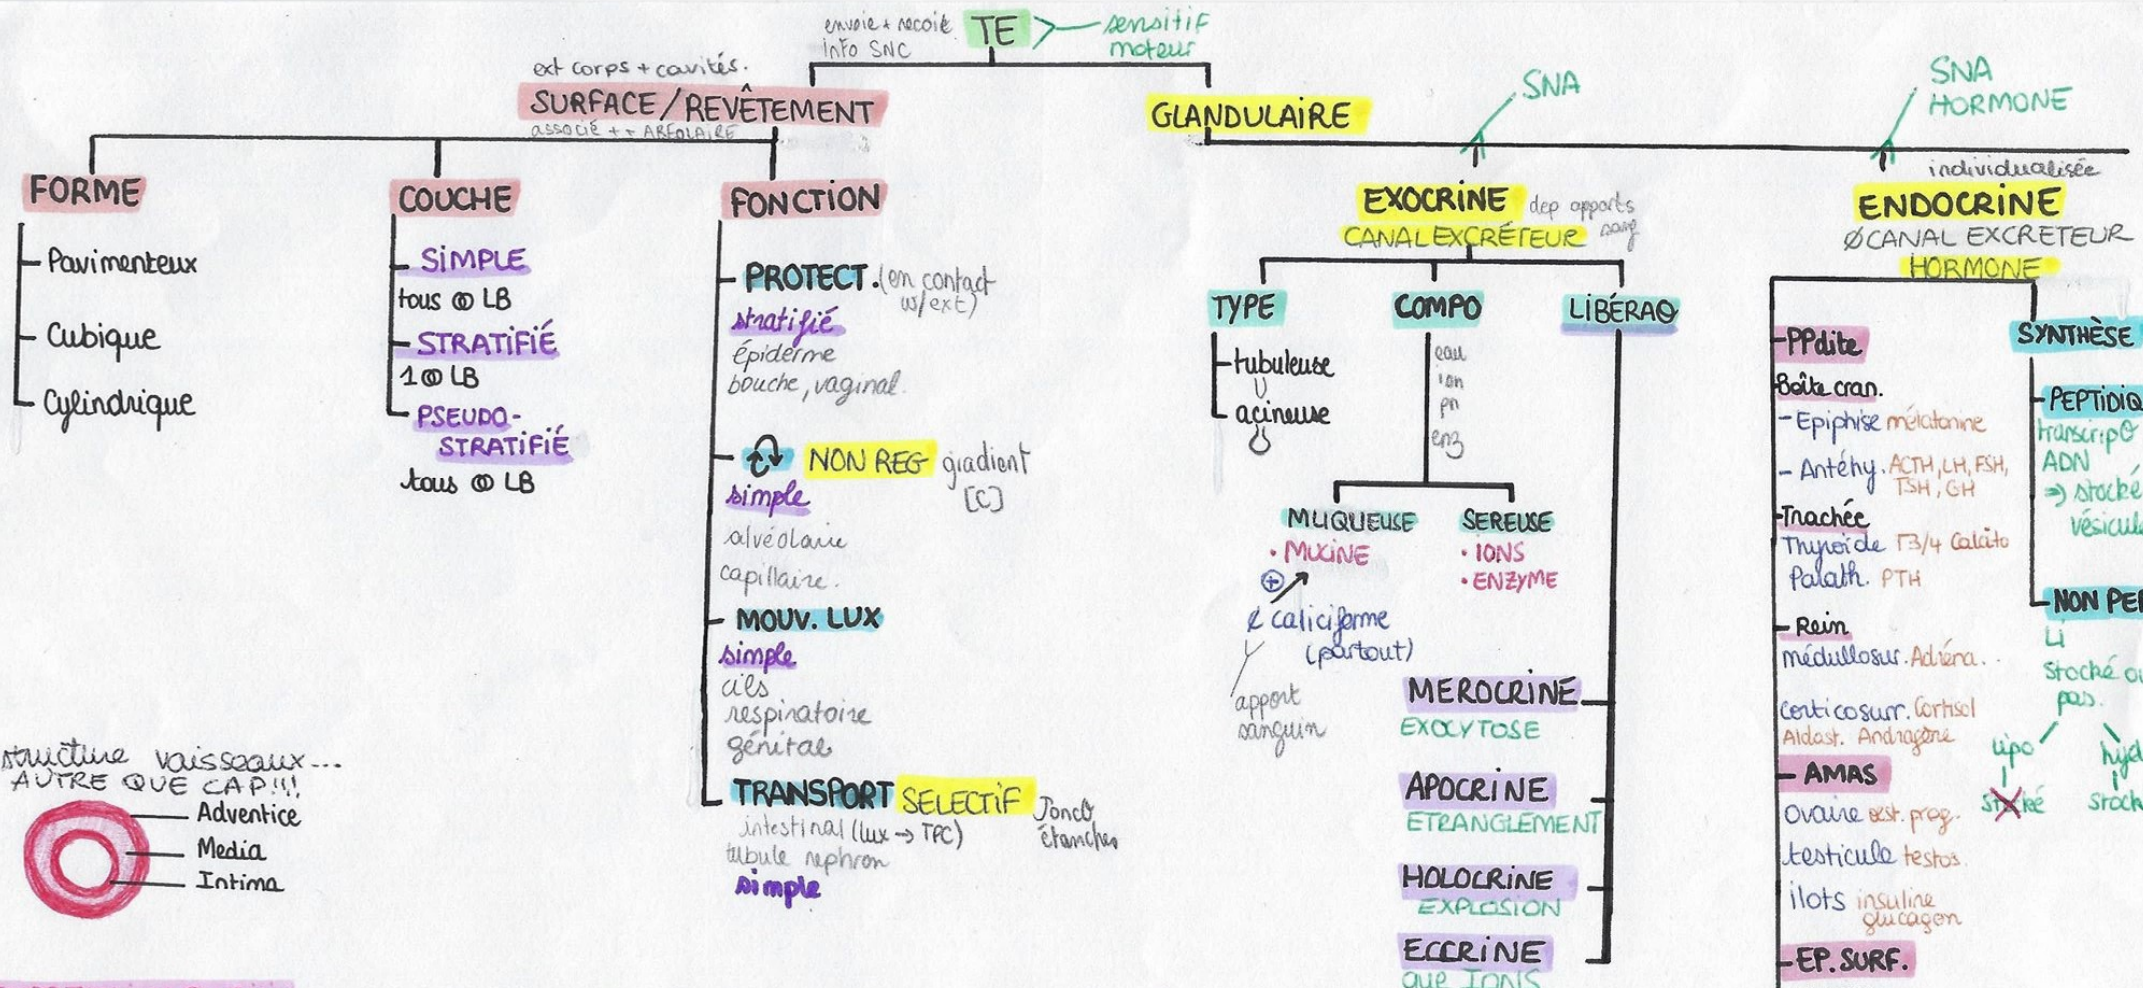 envoie + reçoit
info SNC
TE
sensitif
moteur
ext corps + cavités.
SURFACE/REVÊTEMENT
associé ++ ARÉOLAIRE
FORME
Pavimenteux
Cubique
Cylindrique
COUCHE
SIMPLE
tous LB
STRATIFIÉ
1 LB
PSEUDO-
STRATIFIÉ
tous LB
FONCTION
PROTECT. (en contact
w/ext)
stratifié
épiderme
bouche, vaginal.
NON REG gradient
[C]
simple
alvéolaire
capillaire.
MOUV. LUX
simple
cils
respiratoire
génital
TRANSPORT SELECTIF Joncθ
étanches
intestinal (lux → TPC)
tubule nephron
simple
structure vaisseaux...
AUTRE QUE CAP!!!
Adventice
Media
Intima
GLANDULAIRE
SNA
EXOCRINE dep apports
sang
CANAL EXCRÉTEUR
TYPE
tubuleuse
acineuse
COMPO
eau
ion
pn
enz
MUQUEUSE
• MUCINE
⊕
¢ caliciforme
(partout)
apport
sanguin
SEREUSE
• IONS
• ENZYME
LIBÉRAθ
MEROCRINE
EXOCYTOSE
APOCRINE
ETRANGLEMENT
HOLOCRINE
EXPLOSION
ECCRINE
que IONS
SNA
HORMONE
individualisée
ENDOCRINE
Ø CANAL EXCRETEUR
HORMONE
PPdite
Boîte cran.
- Epiphise mélatonine
- Antéhy. ACTH, LH, FSH,
TSH, GH
Trachée
Thyroïde T3/4 Calcito
Parath. PTH
Rein
médullosur. Adréna..
corticosurr. Cortisol
Aldost. Androgène
AMAS
Ovaire œst. prog.
testicule testos.
ilots insuline
glucagon
EP. SURF.
SYNTHÈSE
PEPTIDIQ
transcripθ
ADN
⇒ stocké
vésicul
NON PEP
Li
stocké ou
pas.
lipo
stocké
hyd
stock